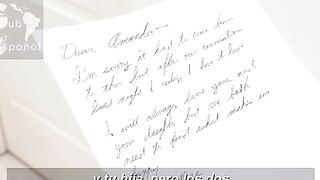 Sub
Español
Dear Amanda—
I'm sorry it had to come down
to this but after our conversation
last night I realize I have to leave
I will always love you and
your daughter but we both
need to find what makes us
happy
y tu hija, pero los dos